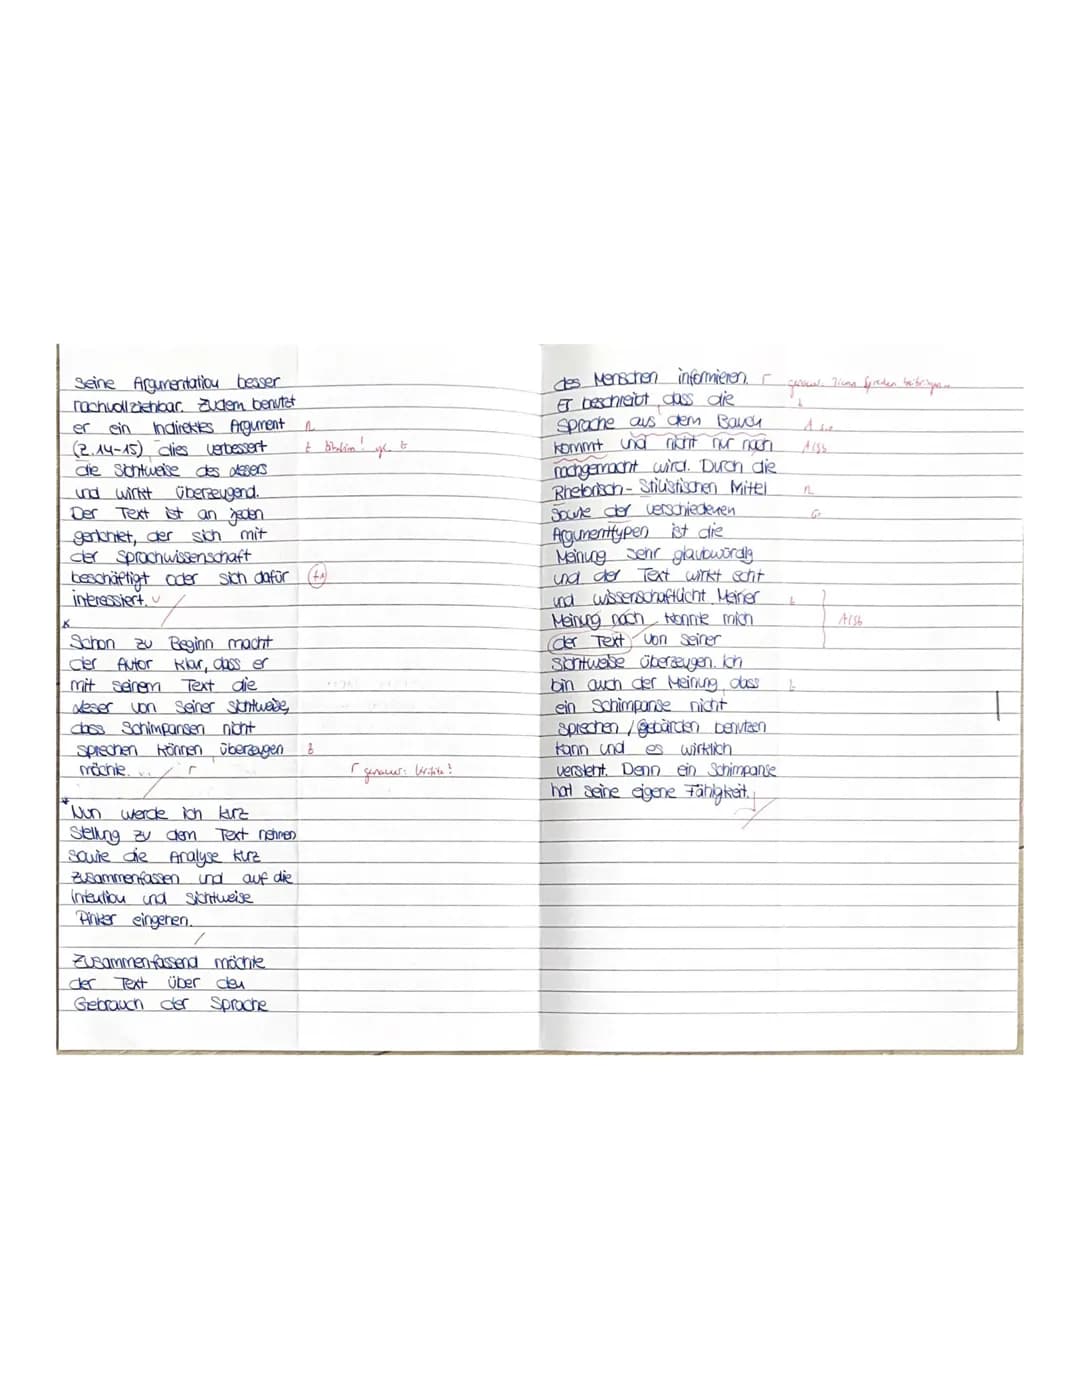 seine Argumentation besser
nachvollziehbar. Zudem benutzt
er ein Indirektes Argument
(Z.14-15), dies verbessert
die Sichtweise des Lesers
und wirkt überzeugend.
Der Text ist an jeden
gerichtet, der sich mit
der Sprachwissenschaft
beschäftigt oder sich dafür
interessiert.
Schon zu Beginn macht
der Autor klar, dass er
mit seinem Text die
Leser von seiner Sichtweise,
dass Schimpansen nicht
sprechen können überzeugen
möchte.
genauer: Kritik!
Nun werde ich kurz
Stellung zu dem Text nehmen
sowie die Analyse kurz
zusammenfassen und auf die
Intention und Sichtweise
Pinker eingehen.
Zusammenfassend möchte
der Text über den
Gebrauch der Sprache
des Menschen informieren.
Er beschreibt, dass die
Sprache aus dem Bauch
kommt und nicht nur nach
nachgemacht wird. Durch die
Rhetorisch-Stilistischen Mittel
sowie der verschiedenen
Argumenttypen ist die
Meinung sehr glaubwürdig
und der Text wirkt echt
und wissenschaftlicht. Meiner
Meinung nach konnte mich
der Text von seiner
Sichtweise überzeugen. Ich
bin auch der Meinung, dass
ein Schimpanse nicht
sprechen / Gebärden benutzen
kann und es wirklich
versteht. Denn ein Schimpanse
hat seine eigene Fähigkeit.